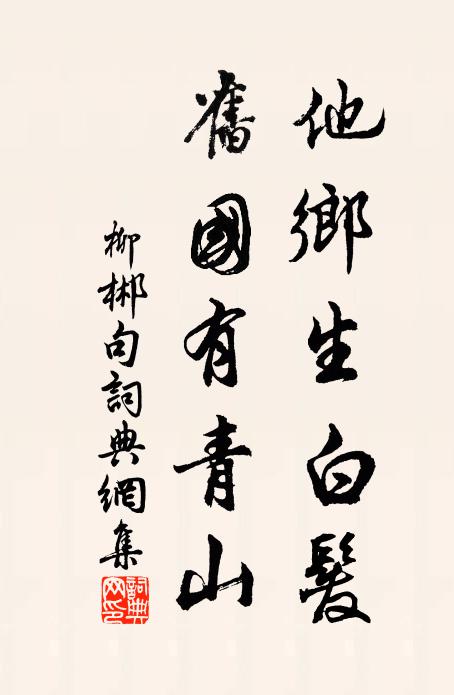 他鄉生白髮
舊國有青山
柳郴句詞典網集
詞典網印